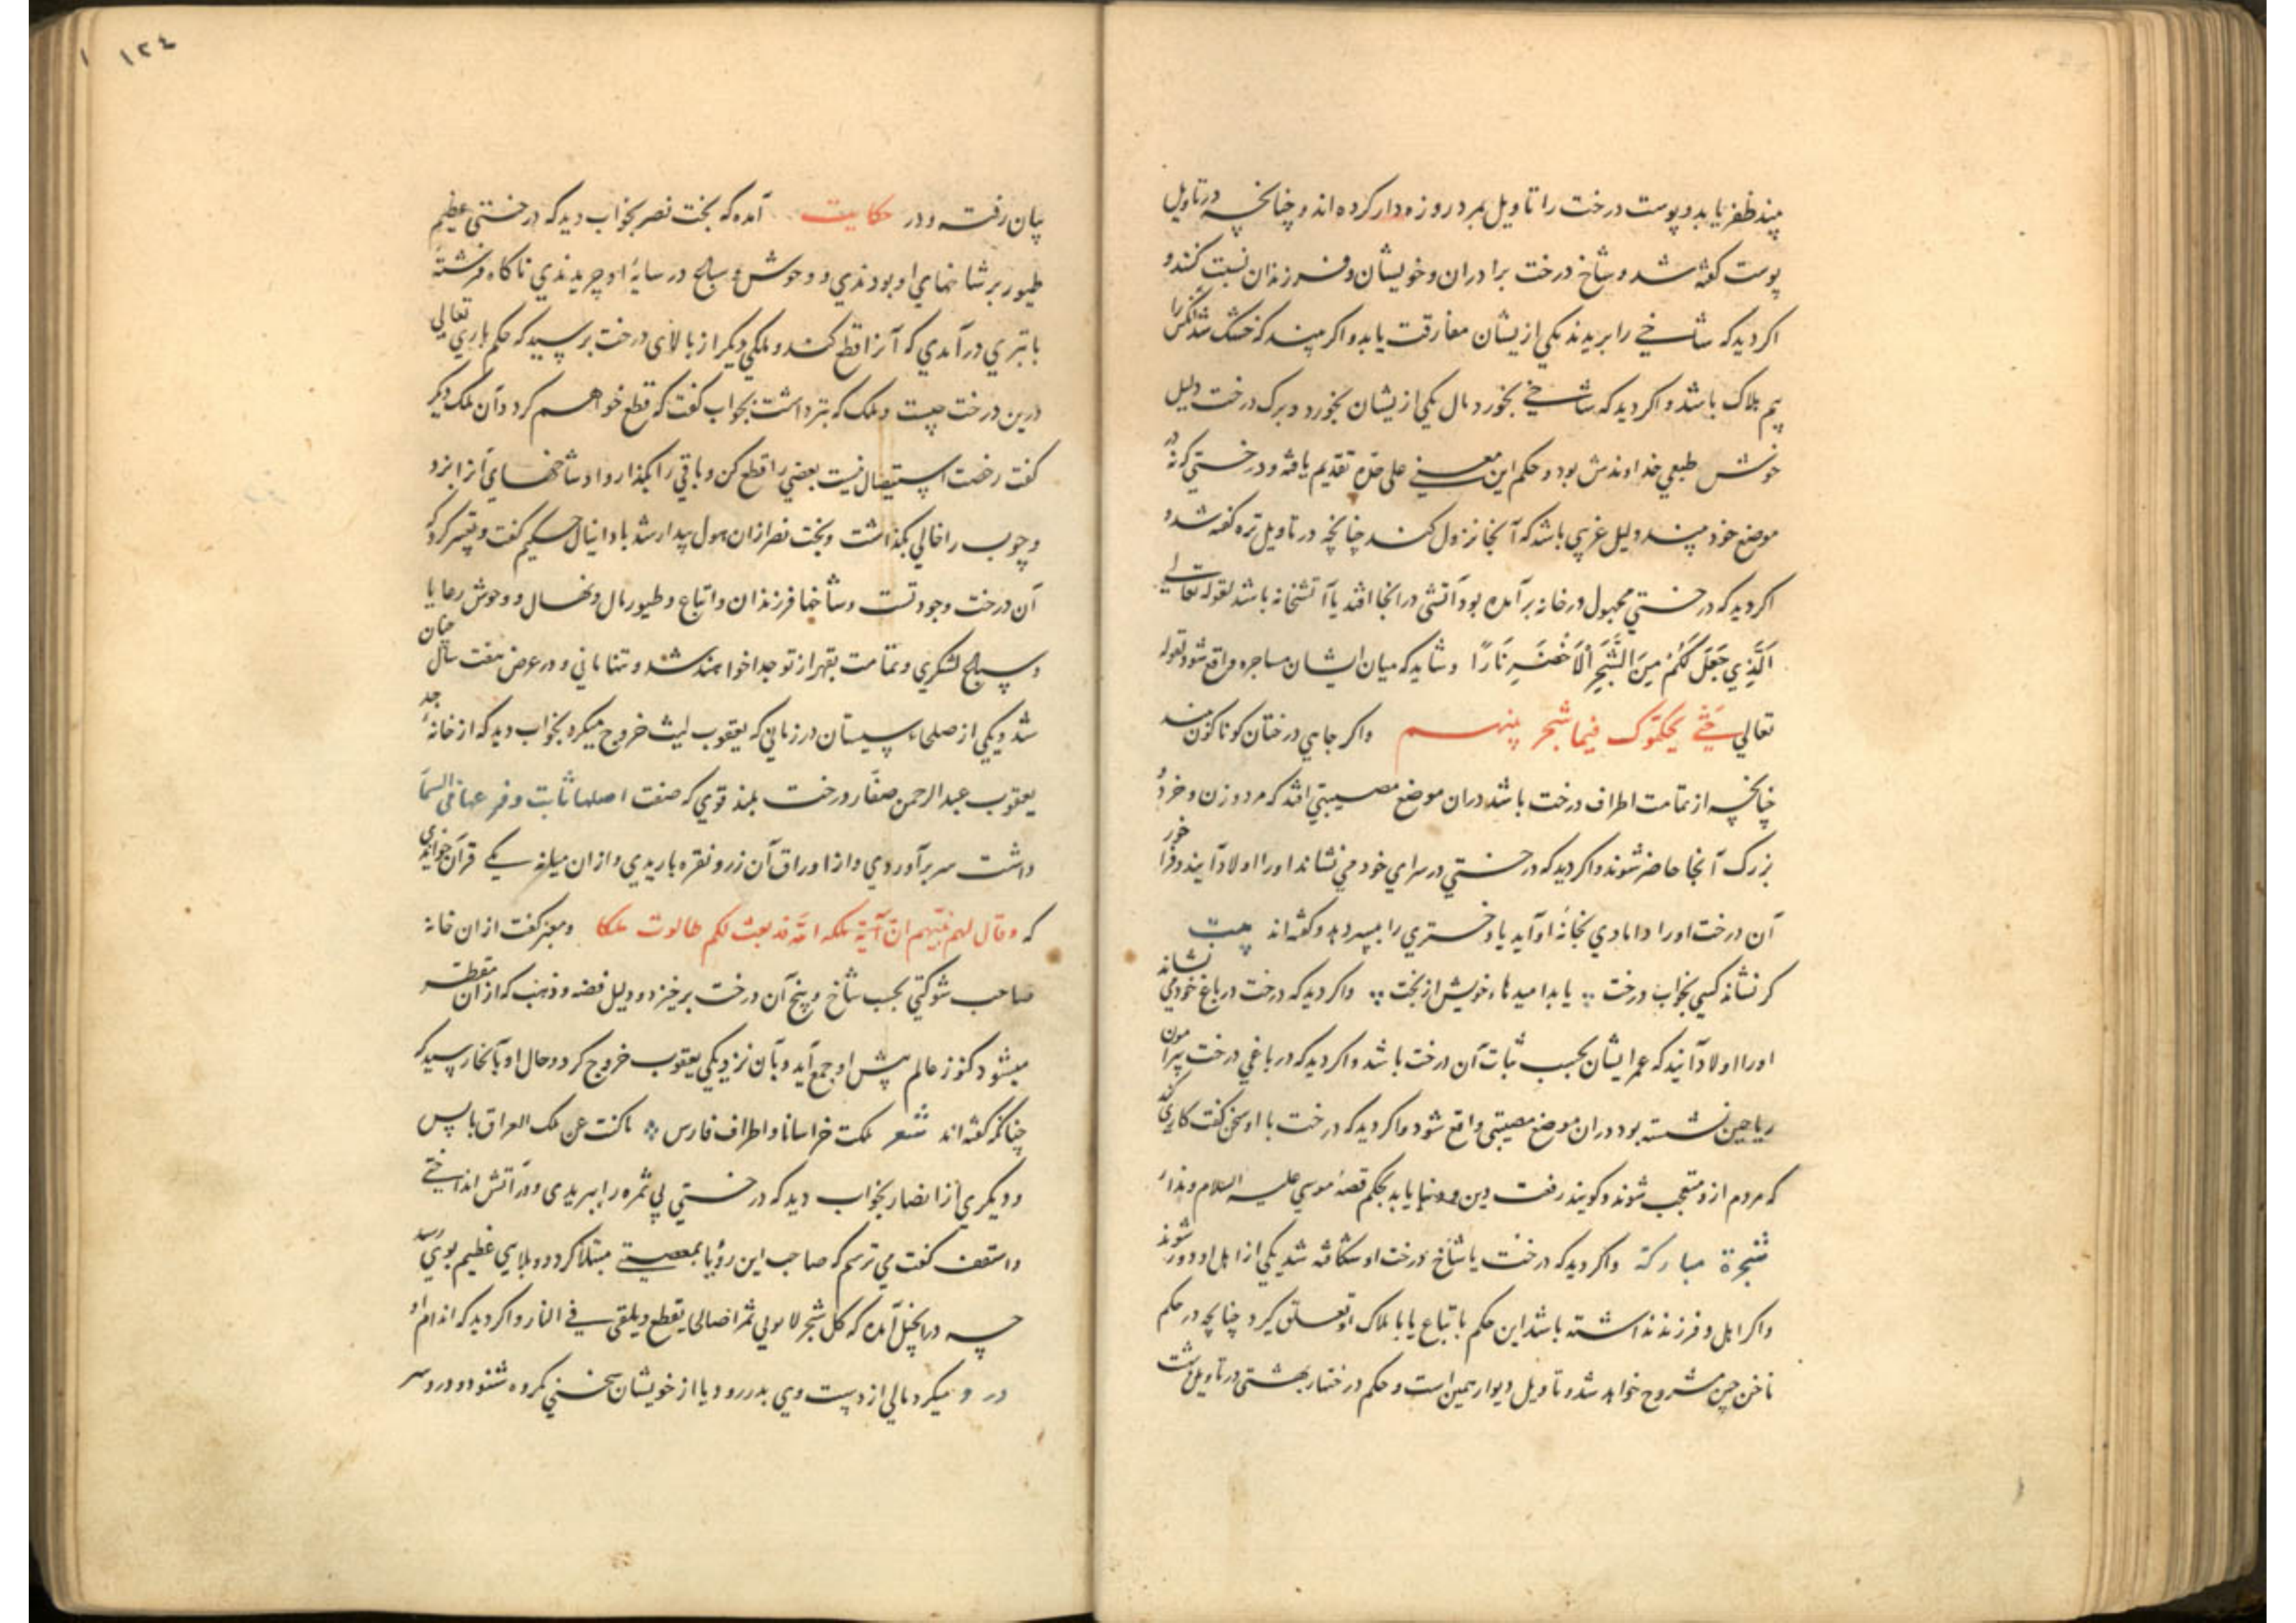 بیند ظفر یابد و پوست درخت را تاویل بمرد روزه دار کرده اند و چنانچه در تاویل
پوست گفته شد و شاخ درخت برادران و خویشان و فرزندان نسبت کنند و
اکر دید که شاخی را بریدند یکی ازیشان مفارقت یابد و اکر بیند که خشک شد آنکس را
بیم هلاک باشد و اکر دید که شاخی بخورد مال یکی ازیشان بخورد و برک درخت دلیل
خوش طبعی خداوندش بود و حکم این معنی علی حده تقدیم یافته و درختی که نه در
موضع خود بیند دلیل غریبی باشد که آنجا نزول کند چنانچه در تاویل تره گفته شد و
اکر دید که درختی مجهول در خانه بر آمده بود آتشی در انجا افتد یا آتشخانه باشد لقوله تعالی
اَلَّذِي جَعَلَ لَكُمْ مِنَ الشَّجَرِ الْاَخْضَرِ نَارًا و شاید که میان ایشان مشاجره واقع شود لقوله
تعالی حَتّٰی یحکموک فیما شجر بینهم واکر جایی درختان کوناکون بیند
چنانچه از تمامت اطراف درخت باشد دران موضع مصیبتی افتد که مرد و زن و خرد و
بزرک آنجا حاضر شوند و اکر دید که درختی در سرای خود می نشاند اورا اولاد آیند و فراخور
آن درخت اورا دامادی بخانهٔ او آید یا دختری را بپسر دهد و گفته اند بیت
کر نشاند کسی بخواب درخت ؞ یابد امیدهاء خویش از بخت ؞ واکر دید که درخت در باغ خود می نشاند
اورا اولاد آیند که عمر ایشان بحسب ثبات آن درخت باشد و اکر دید که در باغی درخت پیرامون
ریاحین نشسته بود دران موضع مصیبتی واقع شود و اکر دید که درخت با او سخن گفت کاری کند
که مردم ازو متعجب شوند و کویند رفعت دین و دنیا یابد بحکم قصهٔ موسی علیه السلام و نداء
شجرة مباركة واکر دید که درخت یا شاخ درخت او شکافته شد یکی از اهل او دور شوند
واکر اهل و فرزند نداشته باشد این حکم باتباع یا با هلاک او تعلق کیرد چنانچه در حکم
ناخن چین مشروح خواهد شد و تاویل دیوار همین است و حکم درختها بهشتی در تاویل بهشت
بیان رفته و در حکایت آمده که بخت نصر بخواب دید که درختی عظیم
طیور بر شاخهای او بودندی و وحوش و سباع در سایهٔ او چریدندی ناکاه فرشتهٔ
با تبری در آمدی که آنرا قطع کند و ملکی دیکر از بالای درخت بر پرسید که حکم باری تعالی
درین درخت چیست و ملک که تبر داشت بجواب گفت که قطع خواهم کرد و آن ملک دیکر
گفت رخصت استیصال نیست بعضی را قطع کن و باقی را بکذار و او شاخهای آنرا بزد
و چوب را خالی بکذاشت و بخت نصر ازان هول بیدار شد با دانیال حکیم گفت و تعبیر کرد که
آن درخت وجود تست و شاخها فرزندان و اتباع و طیور مال و نهال و وحوش رعایا
و سباع لشکری و تمامت بقهر از تو جدا خواهند شد و تنها مانی و در عرض هفت سال چنان
شد و یکی از صلحاء سیستان در زمانی که یعقوب لیث خروج میکرد بخواب دید که از خانهٔ جد
یعقوب عبد الرحمن صفار درخت بلند قوی که صفت اصلها ثابت و فرعها فی السما
داشت سر برآوردی و از اوراق آن زر و نقره باریدی و ازان میانه یکی قرآن خواندی
که وقال لهم نبیهم ان آیة ملکه الله قد بعث لکم طالوت ملکا و معبر گفت ازان خانه
صاحب شوکتی بحسب شاخ و بیخ آن درخت برخیزد و دلیل فضه و ذهب که از آن متقطر
میشود کنوز عالم پیش او جمع آید و بآن نزدیکی یعقوب خروج کرد و حال او بآنجا رسید که
چنانکه گفته اند شعر ملکت خراسانا و اطراف فارس ؞ ماکنت عن ملک العراق بایس
و دیکری از انصار بخواب دید که درختی بی ثمره را ببریدی و در آتش انداختی
و اسقف گفت می ترسم که صاحب این رؤیا بمعصیتی مبتلا کردد و بلایی عظیم بوی رسد
چه در انجیل آمده که کل شجر لا یوتی ثمرا صالحا یقطع و یلقی فی النار واکر دید که اندام او
درد میکرد مالی از دست وی بدر رود یا از خویشان سخنی مکروه شنود و درد سر
١٢٤